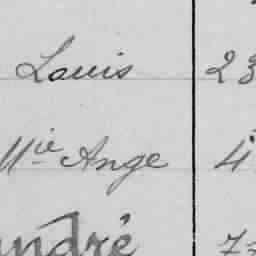 Louis 23
Mie Ange 4
andré 7